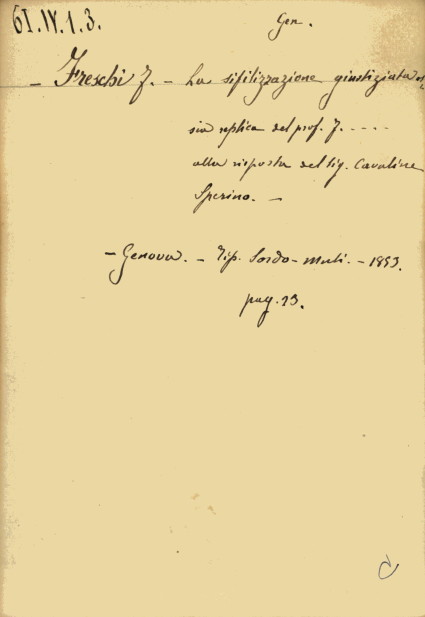 61.IV.1.3.
Gen.
- Freschi F. - La sifilizzazione giustiziata os-
sia replica del prof. F. ....
alla risposta del sig. Cavaliere
Sperino. -
- Genova. - Tip. Sordo-muti. - 1853.
pag. 23.